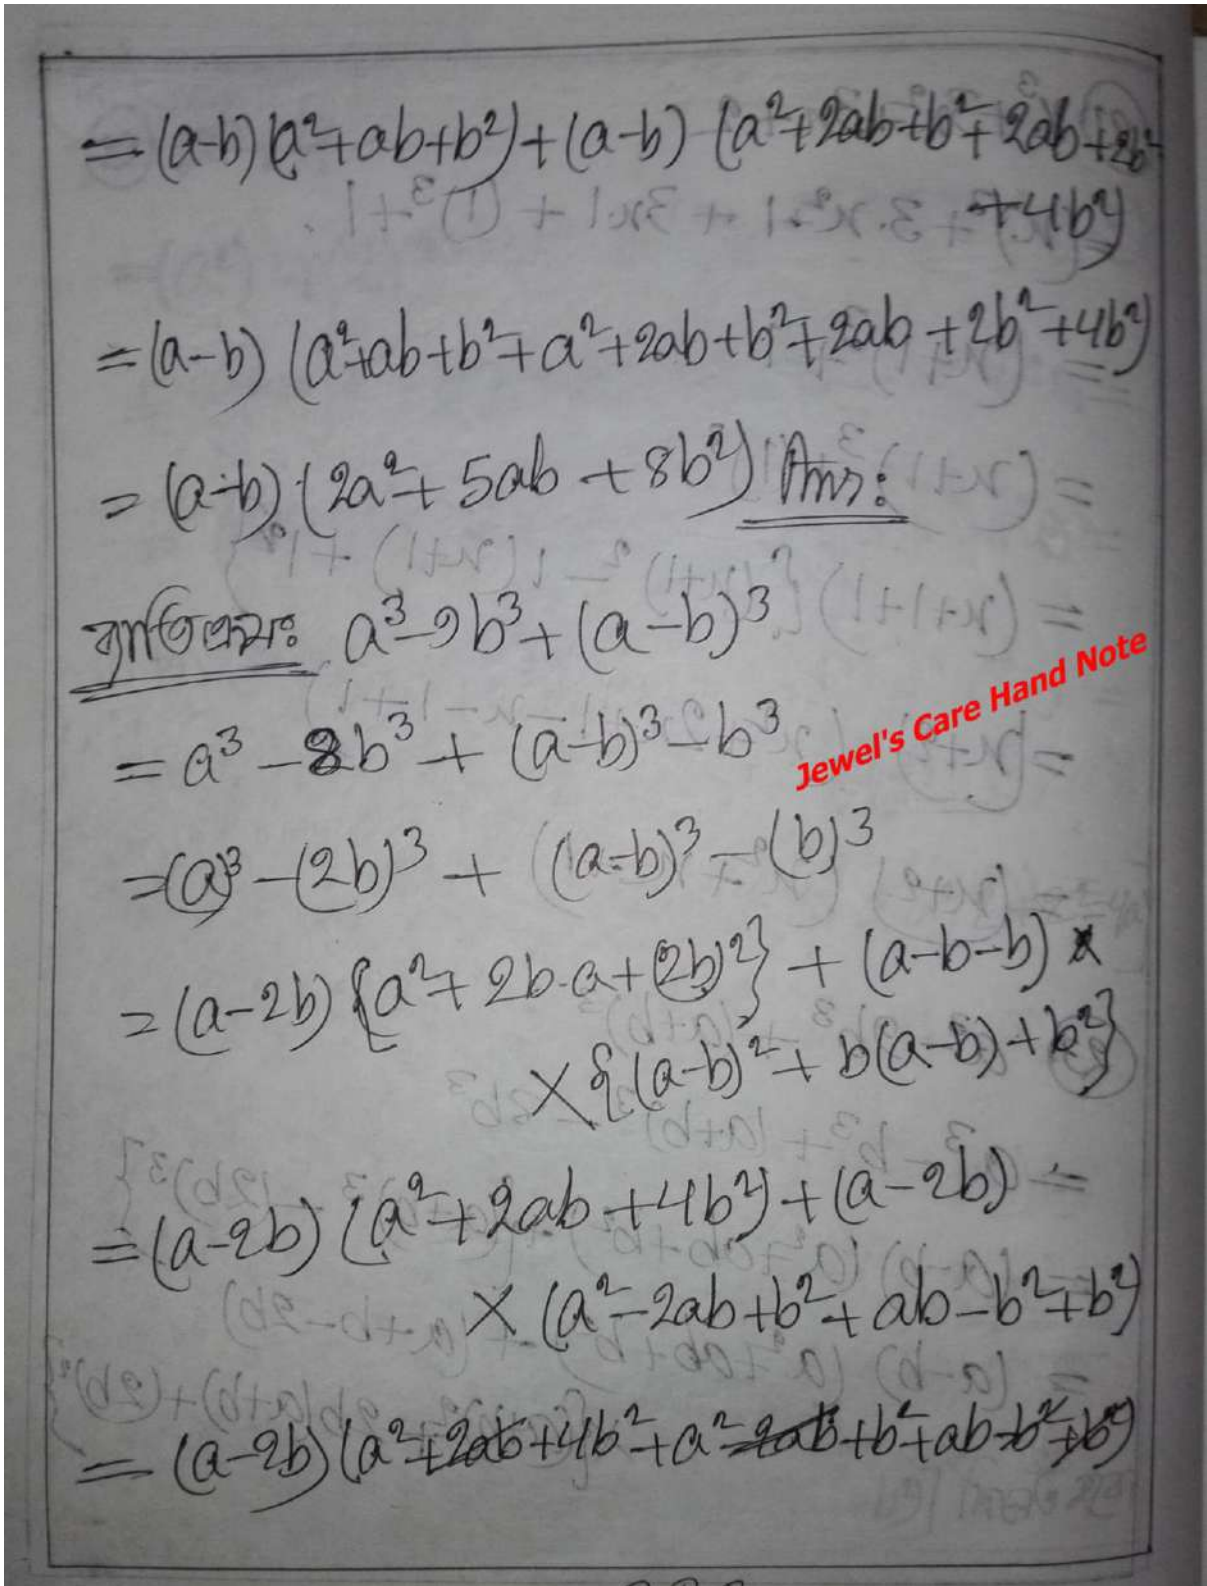 = (a-b)(a²+ab+b²)+(a-b) (a²+2ab+b²+2ab+2b²
+4b²)
= (a-b) (a²+ab+b²+a²+2ab+b²+2ab+2b²+4b²)
= (a-b) (2a²+5ab+8b²) Ans:
ব্যতিক্রমঃ a³-9b³+(a-b)³
= a³-8b³+(a-b)³-b³
Jewel's Care Hand Note
=(a)³-(2b)³+(a-b)³-(b)³
= (a-2b){a²+2b.a+(2b)²}+(a-b-b)×
×{(a-b)²+b(a-b)+b²}
=(a-2b)(a²+2ab+4b²)+(a-2b)
×(a²-2ab+b²+ab-b²+b²)
= (a-2b)(a²+2ab+4b²+a²-2ab+b²+ab-b²+b²)